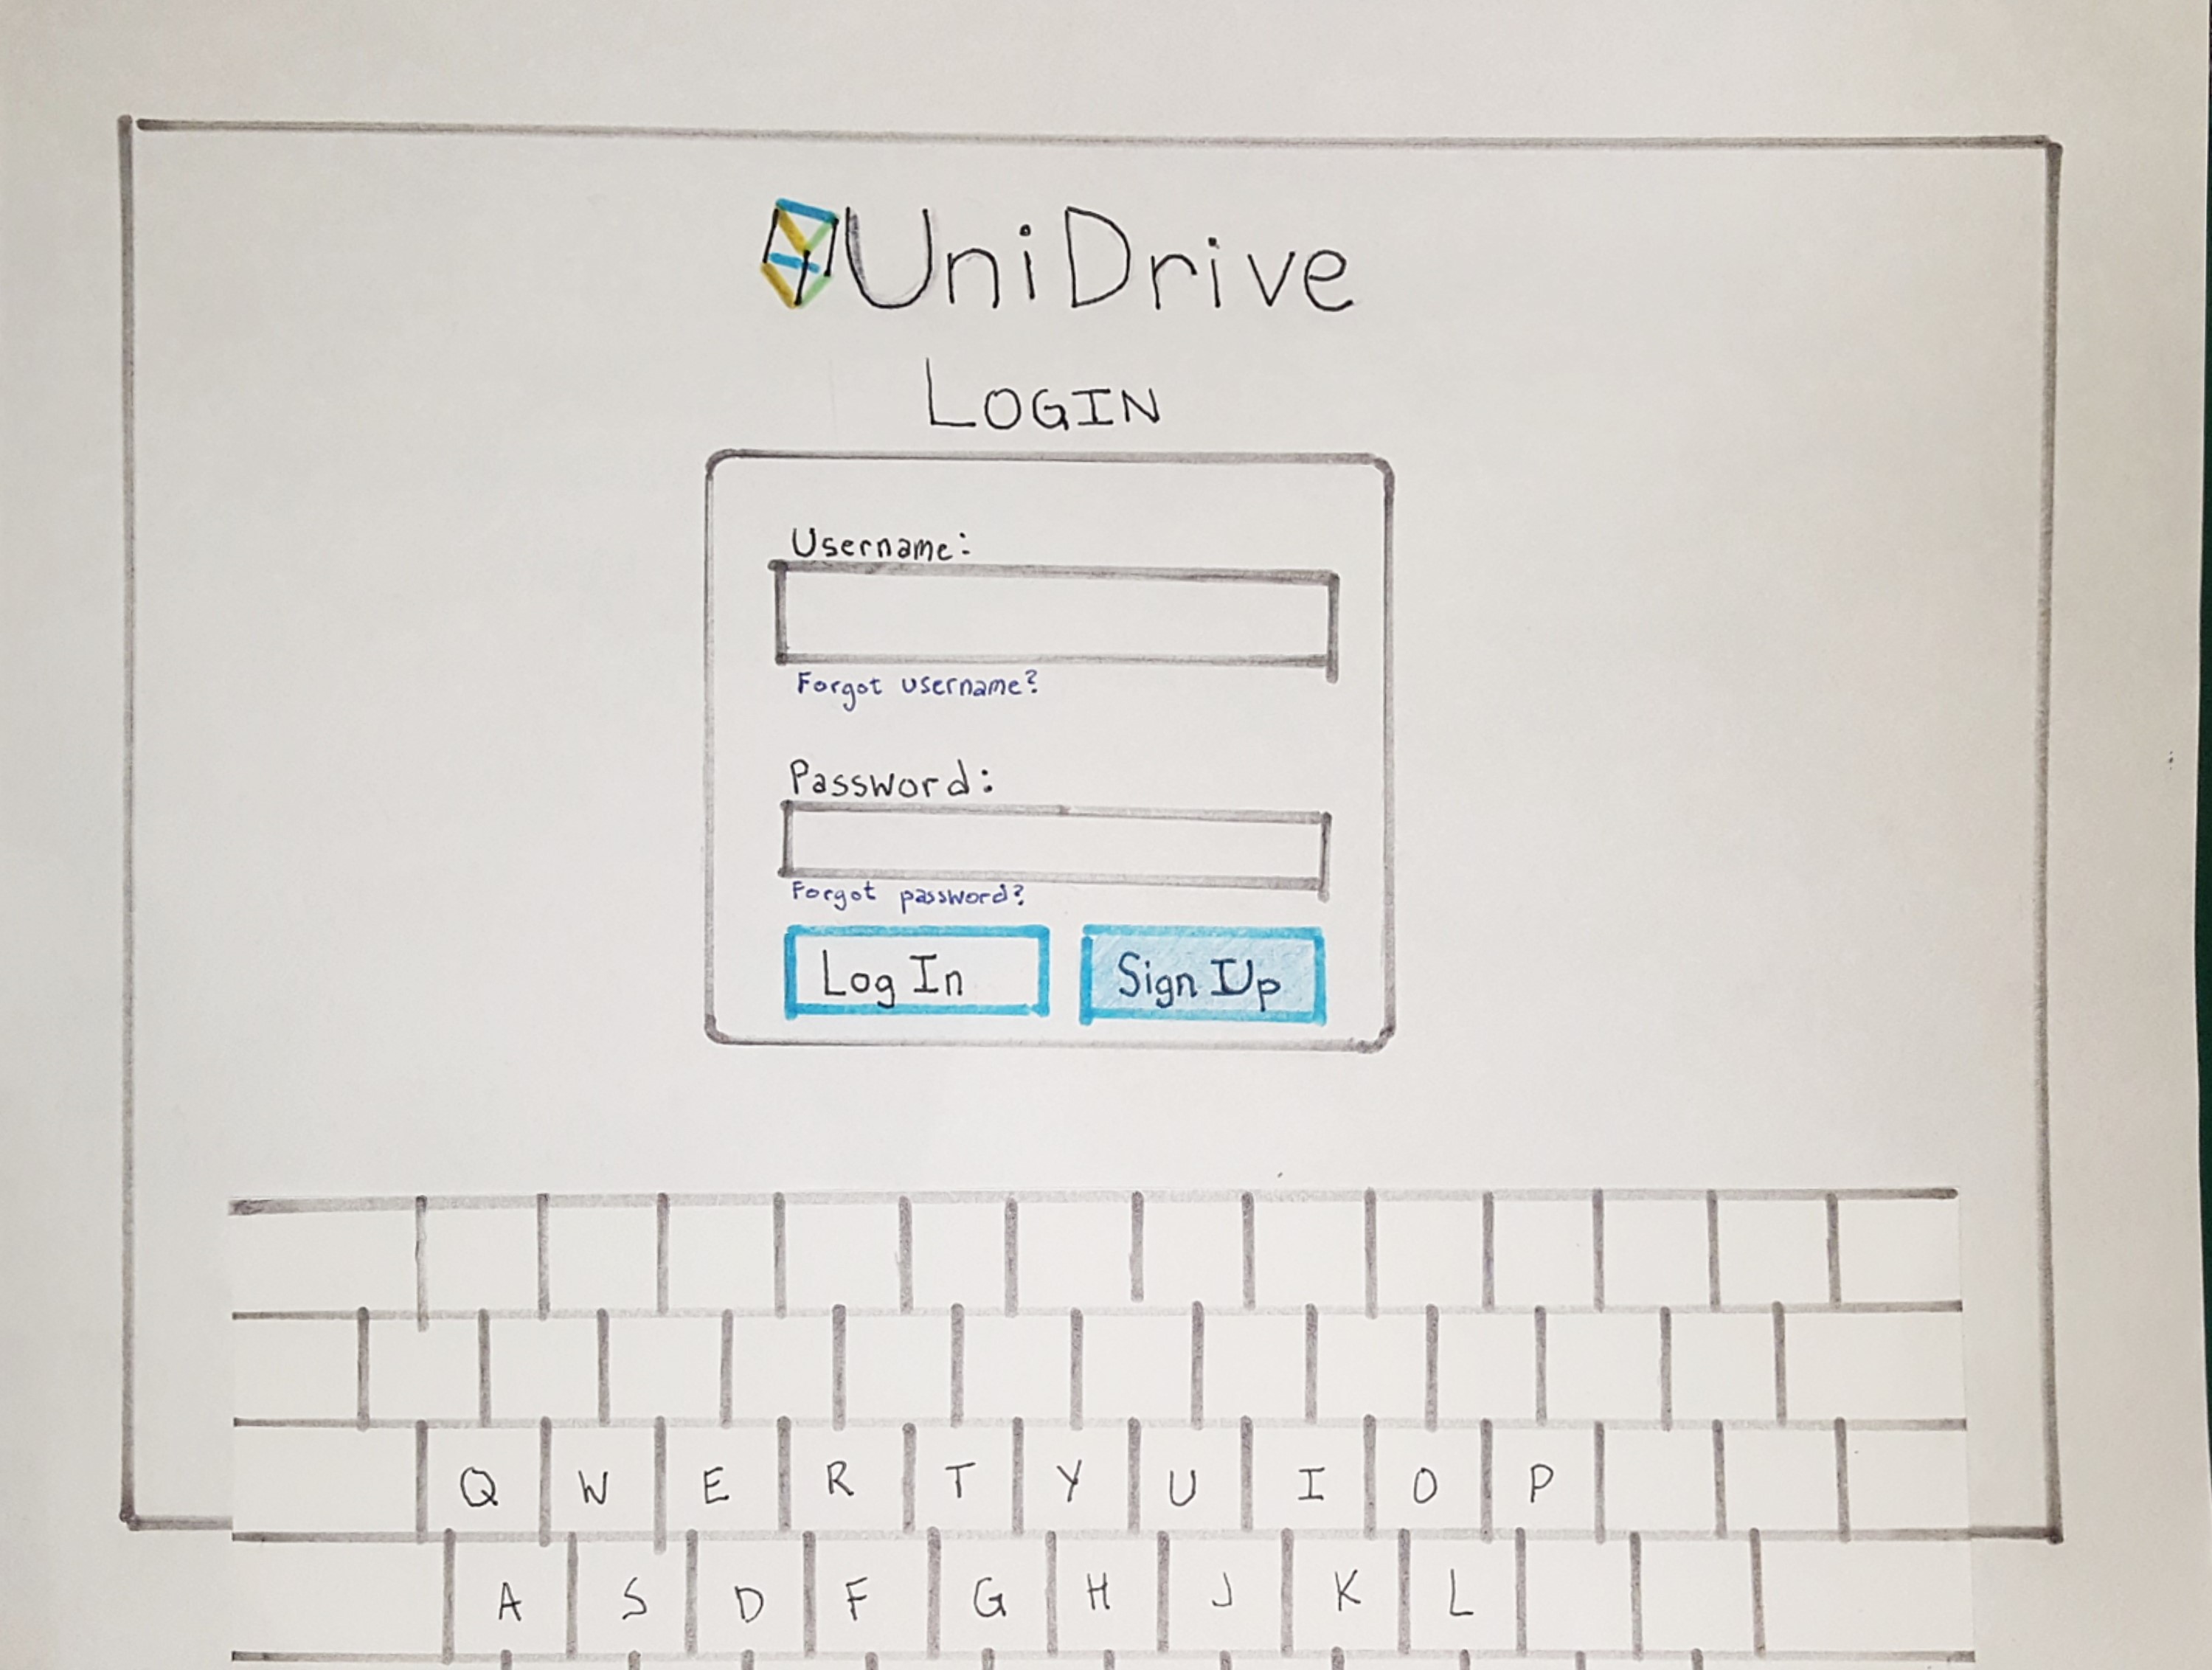 UniDrive
LOGIN
Username:
Forgot username?
Password:
Forgot password?
Log In
Sign Up
Q W E R T Y U I O P
A S D F G H J K L